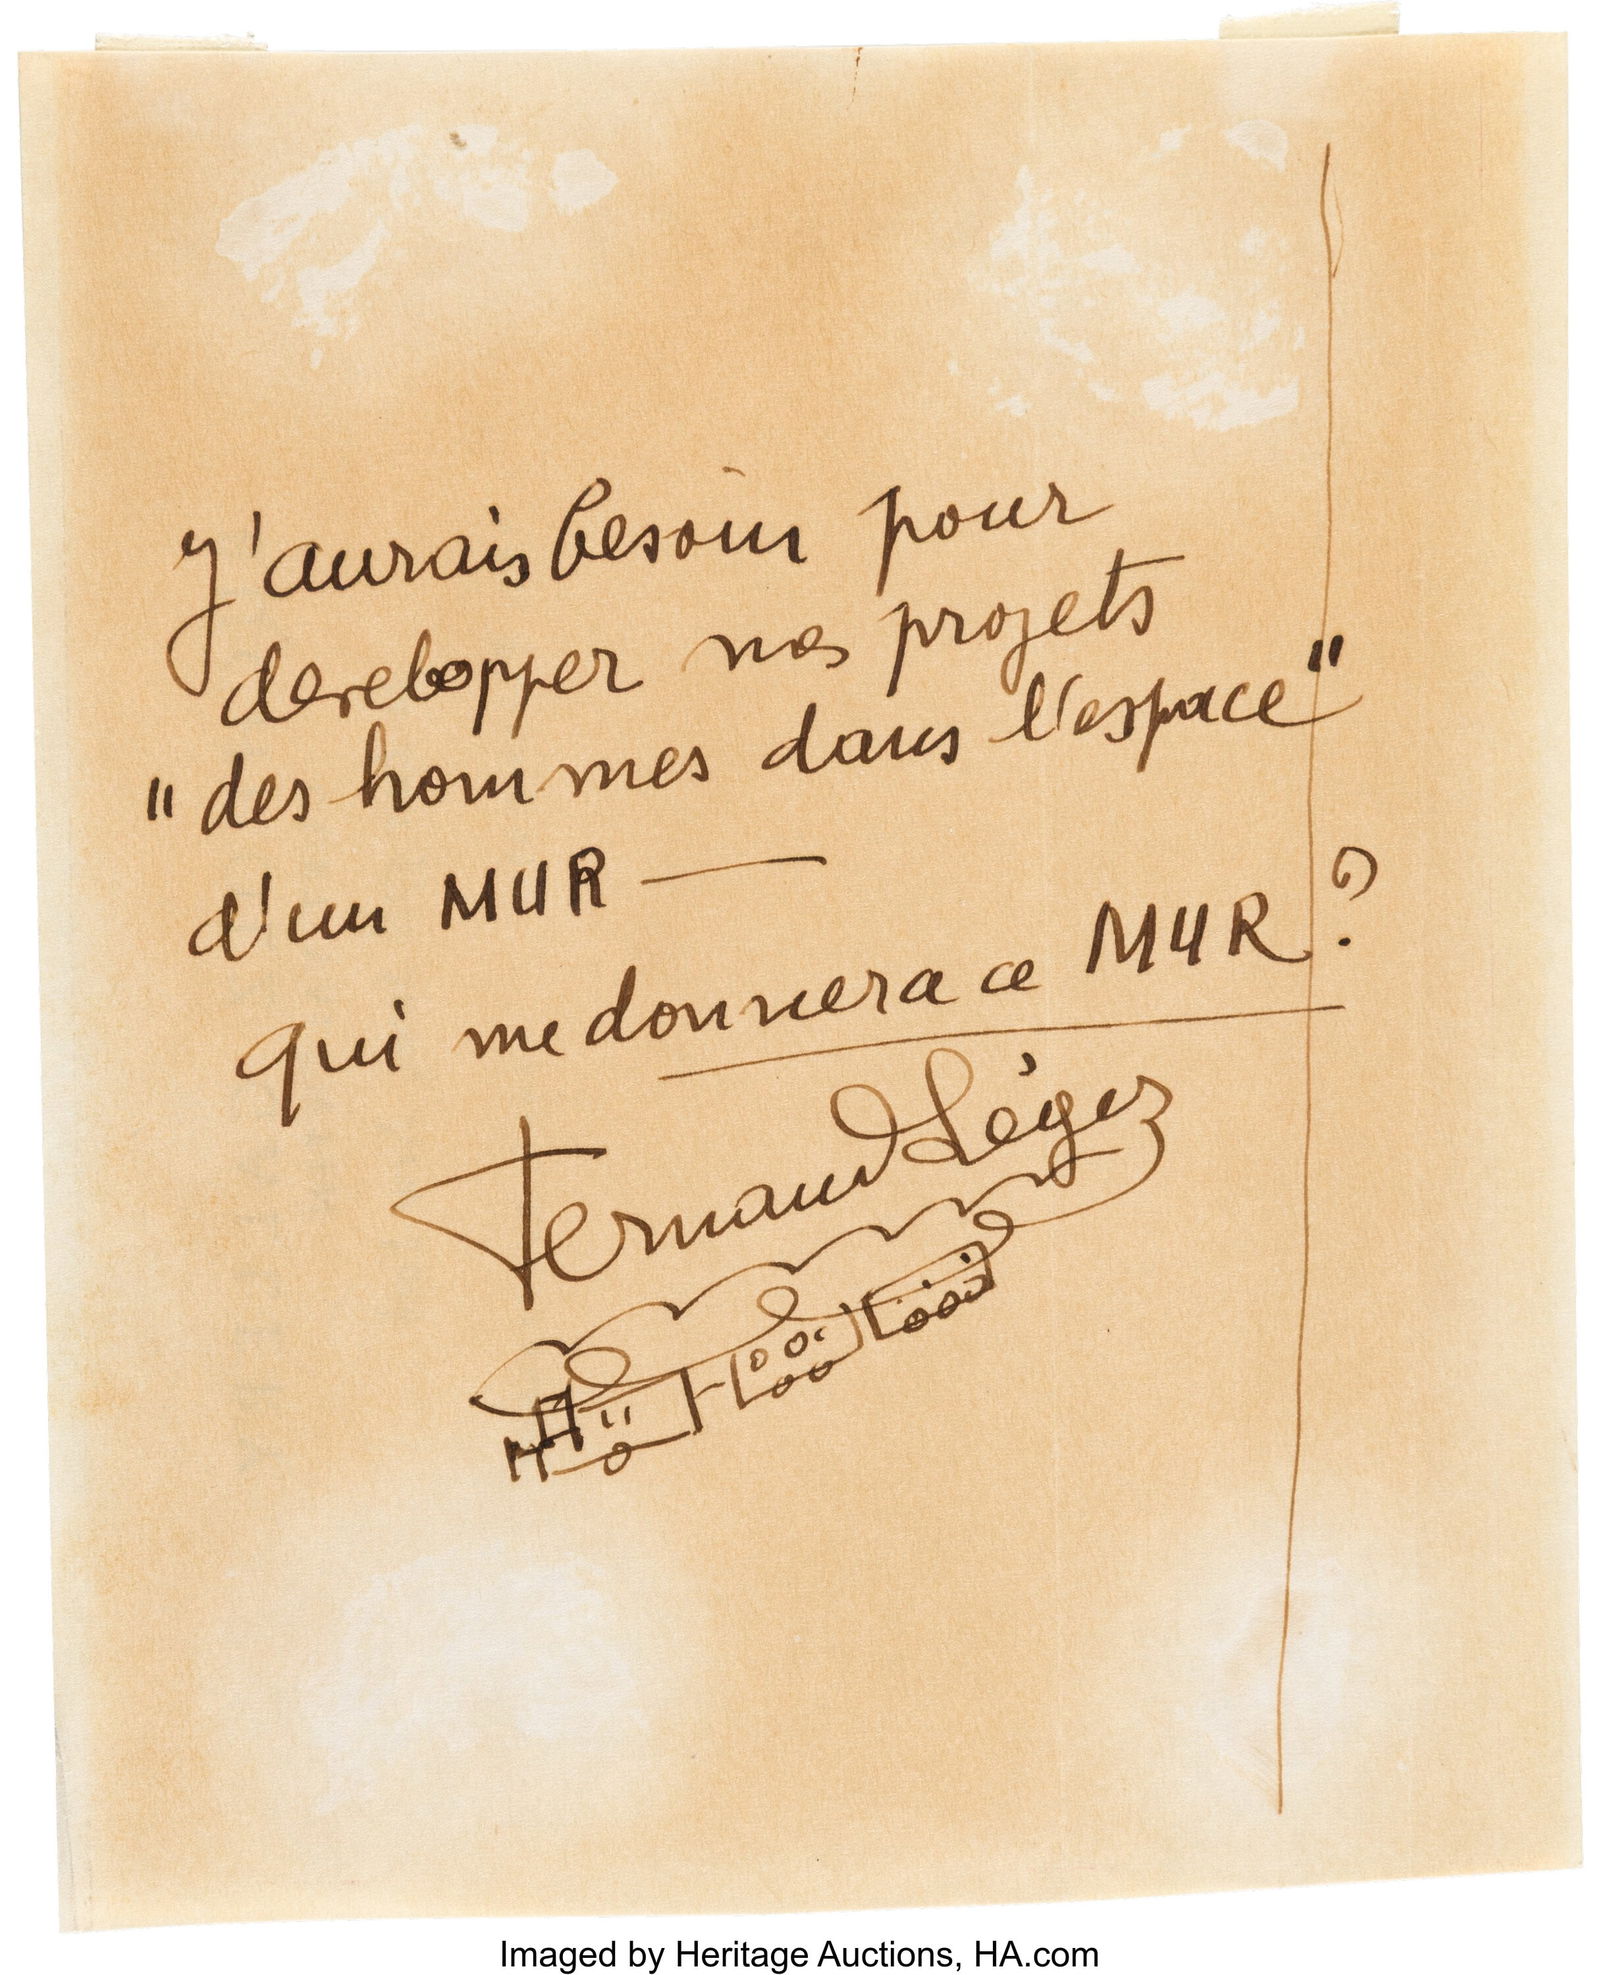 J'aurais besoin pour
developper nos projets
"des hommes dans l'espace"
d'un MUR —
qui me donnera ce MUR ?
Fernand Léger
Imaged by Heritage Auctions, HA.com